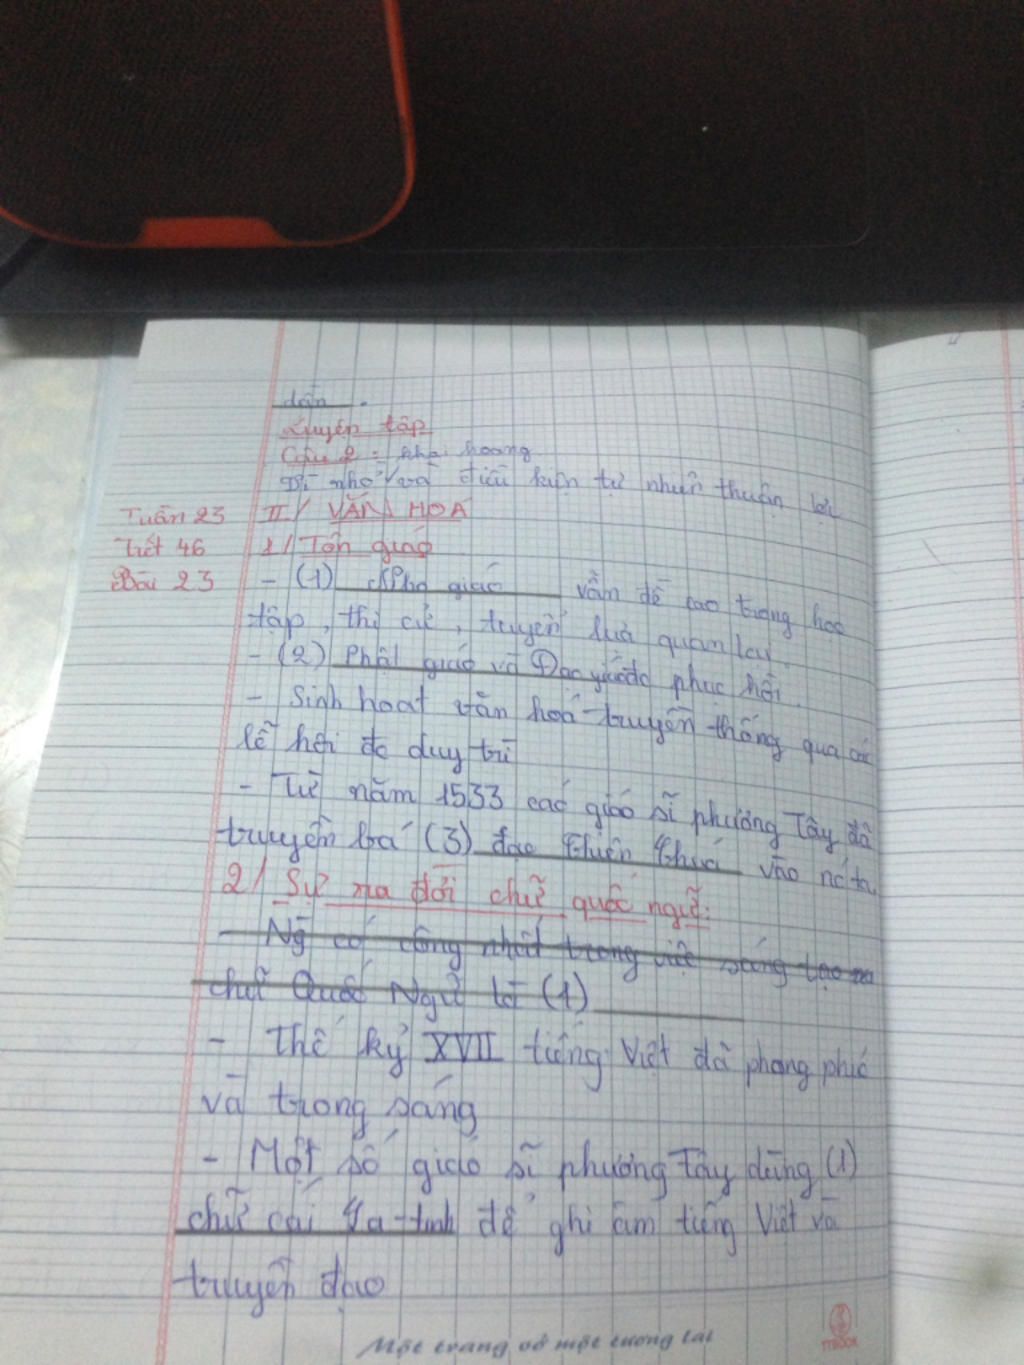 dân.
Luyện tập
Câu 2: khai hoang
nhờ và điều kiện tự nhiên thuận lợi
Tuần 23 II/ VĂN HOÁ
Tiết 46 1/ Tôn giáo
Bài 23 - (1) Nho giáo vẫn đề cao trong học
tập, thi cử, tuyển lựa quan lại.
- (2) Phật giáo và Đạo giáo đc phục hồi.
- Sinh hoạt văn hoá truyền thống qua các
lễ hội đc duy trì
- Từ năm 1533 các giáo sĩ phương Tây đã
truyền bá (3) đạo thiên chúa vào nc ta
2/ Sự ra đời chữ quốc ngữ:
- Ng có công nhất trong việc sáng tạo ra
chữ Quốc Ngữ là (1)
- Thế kỷ XVII tiếng Việt đã phong phú
và trong sáng
- Một số giáo sĩ phương Tây dùng (1)
chữ cái La-tinh để ghi âm tiếng Việt và
truyền đạo
Một trang vở một tương lai